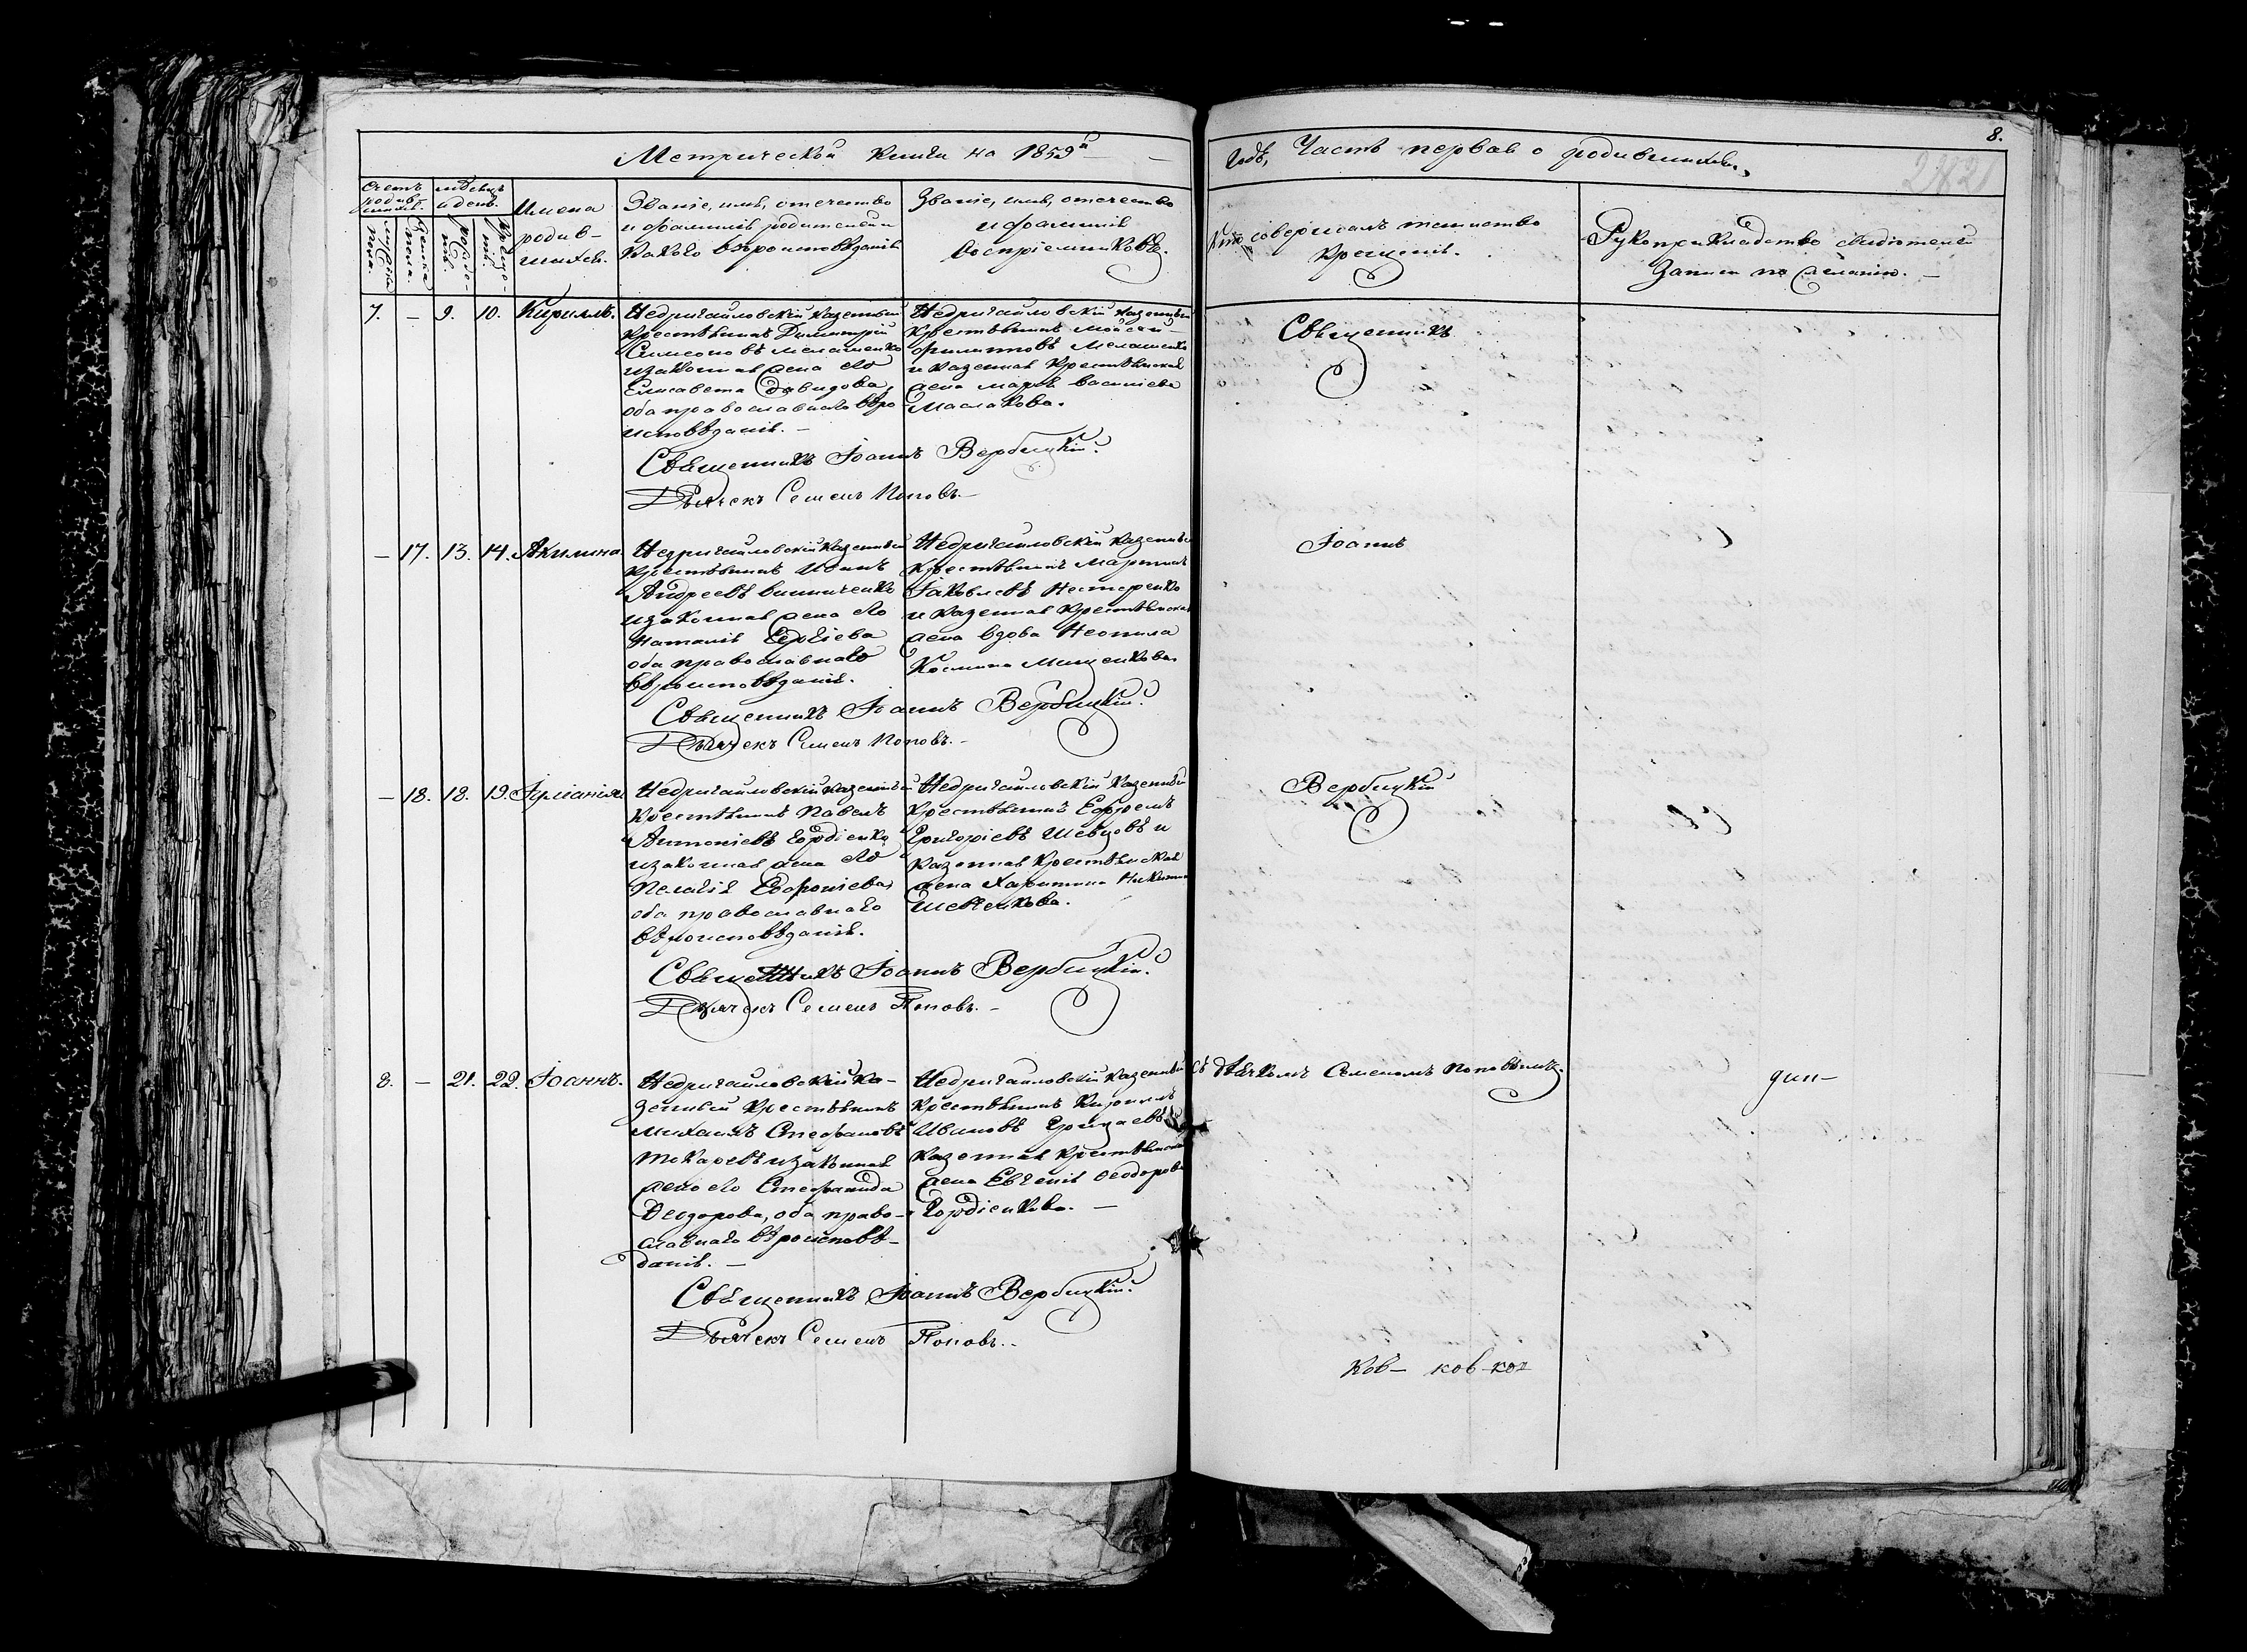 Метрической книги на 1859й
Годъ, Часть первая о родившихся.
8.
2821
Счетъ родившихся.
мужеска пола.
женска пола.
месяцъ и день.
рожденія.
крещенія.
Имена
родив-
шихся.
Званіе, имя, отечество
и фамилія родителей и
какого вѣроисповѣданія
Званіе, имя, отечество
и фамилія
воспріемниковъ.
Кто совершалъ таинство
крещенія.
Рукоприкладство свидѣтелей
записи по желанію.
7. – 9. 10. Кириллъ.
Недригайловскій казенный
крестьянинъ Димитрій
Симеоновъ Мелашенко
и законная жена его
Елисавета Давидова,
оба православнаго вѣро
исповѣданія. –
Недригайловскій казенный
крестьянинъ Моѵсей
Филипповъ Мелашенко
и казенная крестьянская
жена Марія Василіева
Маслакова.
Священникъ
Священникъ Іоаннъ Вербицкій.
Дьячекъ Семенъ Поповъ. –
– 17. 13. 14. Акилина.
Недригайловскій казенный
крестьянинъ Іоаннъ
Андреевъ Винниченко
и законная жена его
Наталія Сергіева
оба православнаго
вѣроисповѣданія.
Недригайловскій казенный
крестьянинъ Мартинъ
Іаковлевъ Нестеренко
и казенная крестьянская
жена вдова Неонила
Космина Мищенкова.
Іоаннъ
Священникъ Іоаннъ Вербицкій.
Дьячекъ Семенъ Поповъ. –
– 18. 18. 19. Іуліанія.
Недригайловскій казенный
крестьянинъ Павелъ
Антоніевъ Гордіенко
и законная жена его
Пелагія Евфиміева,
оба православнаго
вѣроисповѣданія.
Недригайловскій казенный
крестьянинъ Ефремъ
Григоріевъ Шевцовъ и
казенная крестьянская
жена Харитина Никитина
Шевченкова.
Вербицкій
Священникъ Іоаннъ Вербицкій.
Дьячекъ Семенъ Поповъ. –
8. – 21. 22. Іоаннъ.
Недригайловскій ка-
зенный крестьянинъ
Михаилъ Стефановъ
Токаревъ и законная
жена его Стефанида
Феодорова, оба право-
славнаго вѣроисповѣ-
данія. –
Недригайловскій казенный
крестьянинъ Кириллъ
Ивановъ Грицаевъ
казенная крестьянская
жена Евгенія Феодорова
Гордіенкова. –
съ дьячкомъ Семеномъ Поповымъ.
дин–
Священникъ Іоаннъ Вербицкій.
Дьячекъ Семенъ Поповъ. –
ков– ков–ков